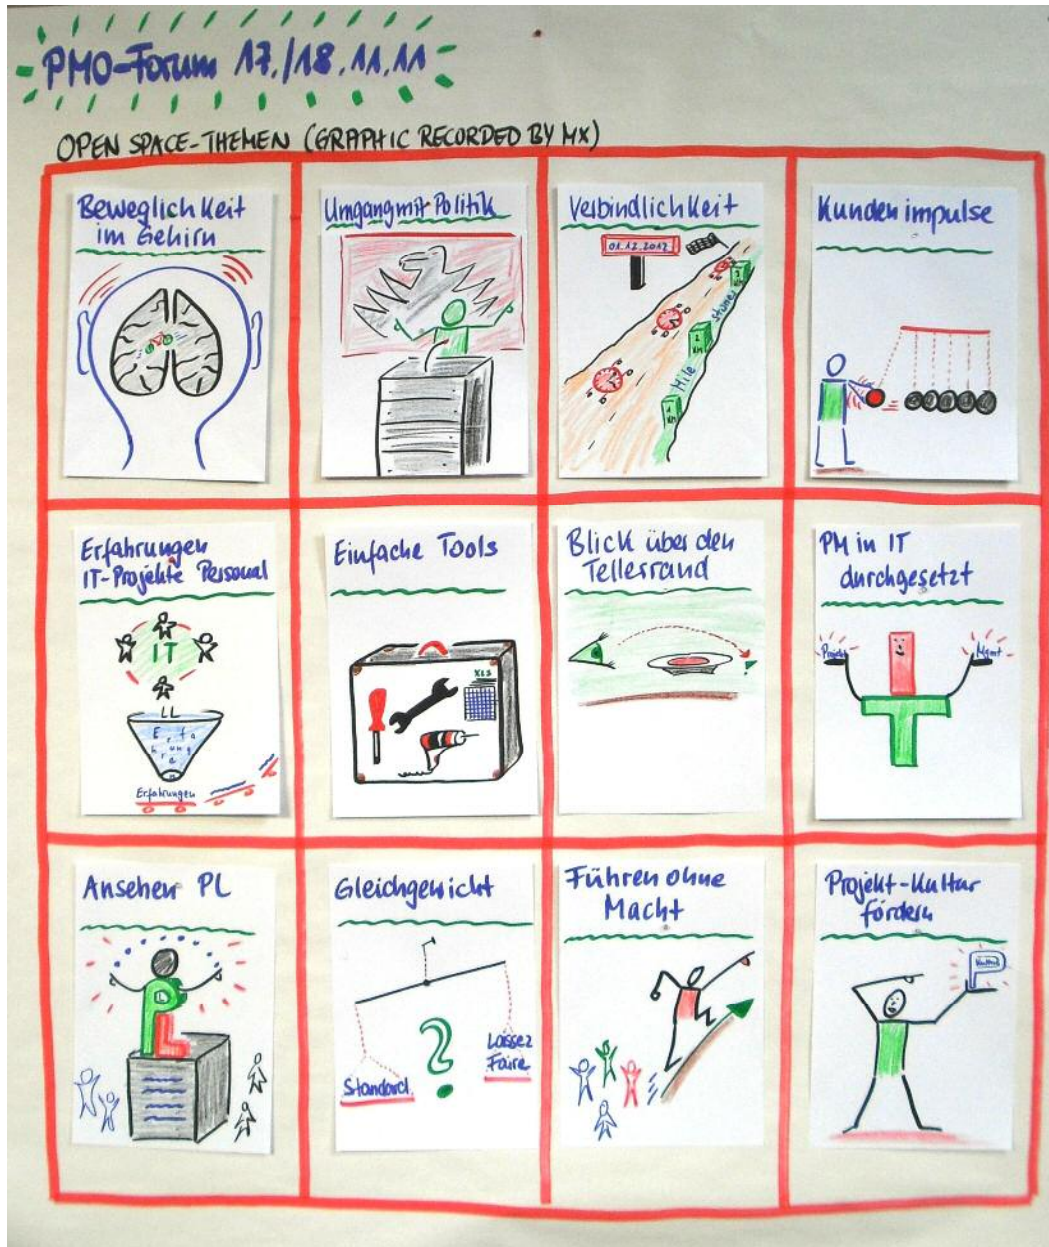 PMO-Forum 17./18.11.11
OPEN SPACE-THEMEN (GRAPHIC RECORDED BY MX)
Beweglichkeit
im Gehirn
Umgang mit Politik
Verbindlichkeit
01.12.2012
3
KM
stones
2
KM
Mile
1
KM
Kundenimpulse
Erfahrungen
IT-Projekte Personal
IT
Erfahrungen
Erfahrungen
Einfache Tools
XLS
Blick über den
Tellerrand
PM in IT
durchgesetzt
Projekt
Mgmt
Ansehen PL
PL
Gleichgewicht
Standard
Laissez
Faire
Führen ohne
Macht
Projekt-Kultur
fördern
P
Kultur